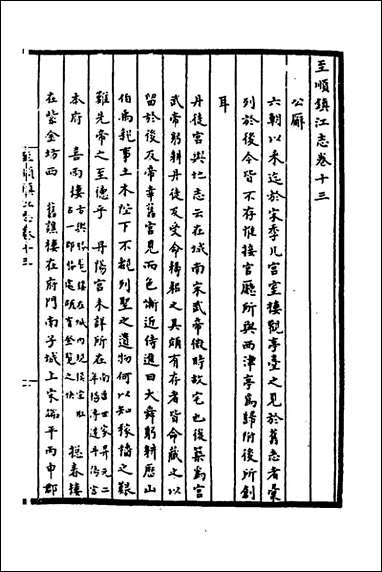 至順鎮江志卷十三
公廨
六朝以來迄於宋季凡宮室樓觀亭臺之見於舊志者彙
列於後今皆不存惟接官廳所與西津亭為歸附後所創
耳
丹徒宮輿地志云在城南宋武帝微時故宅也後築為宮
武帝躬耕丹徒及受命耨耜之具頗有存者皆命藏之以
留於後及帝幸舊宮見而色慚近侍進曰大舜躬耕歷山
伯禹親事土木陛下不覩列聖之遺物何以知稼穡之艱
難先帝之至德乎 丹陽宮未詳所在
本府 喜雨樓 拱春樓
在紫金坊西 舊譙樓在府門南子城上宋端平丙申郡
至順鎮江志卷十三
一